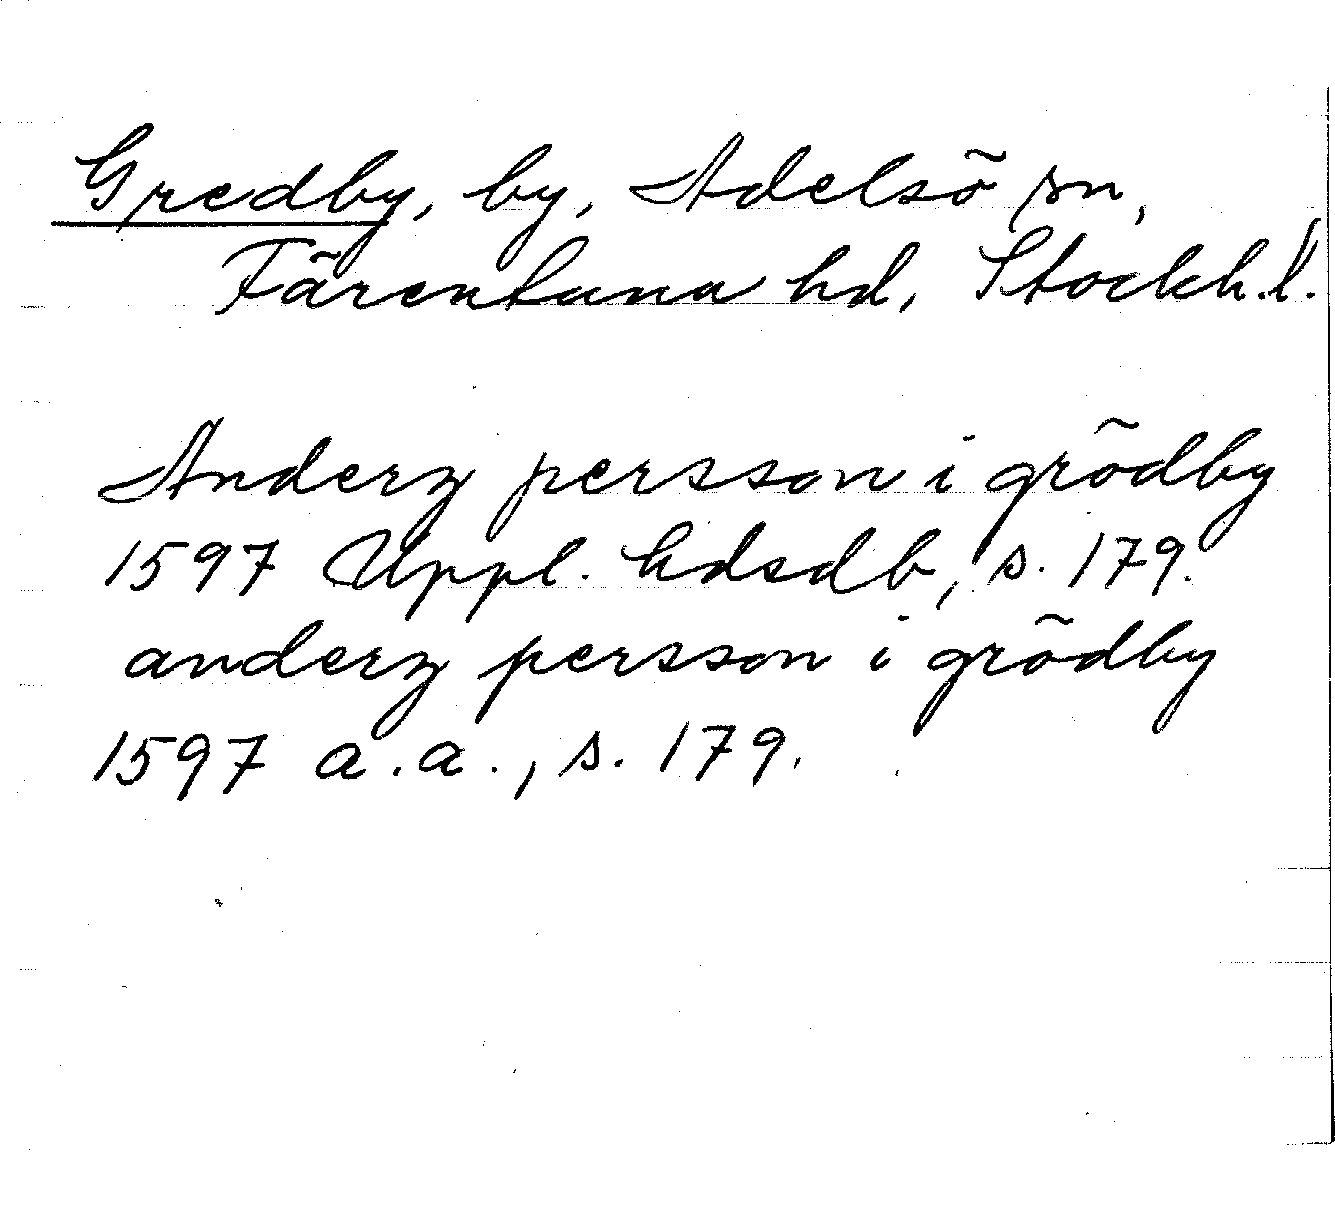 Gredby, by, Adelsö sn,
Färentuna hd, Stockh.l.
Anderz persson i grödby
1597 Uppl. hdsdb, s. 179.
anderz persson i grödby
1597 a.a., s. 179.